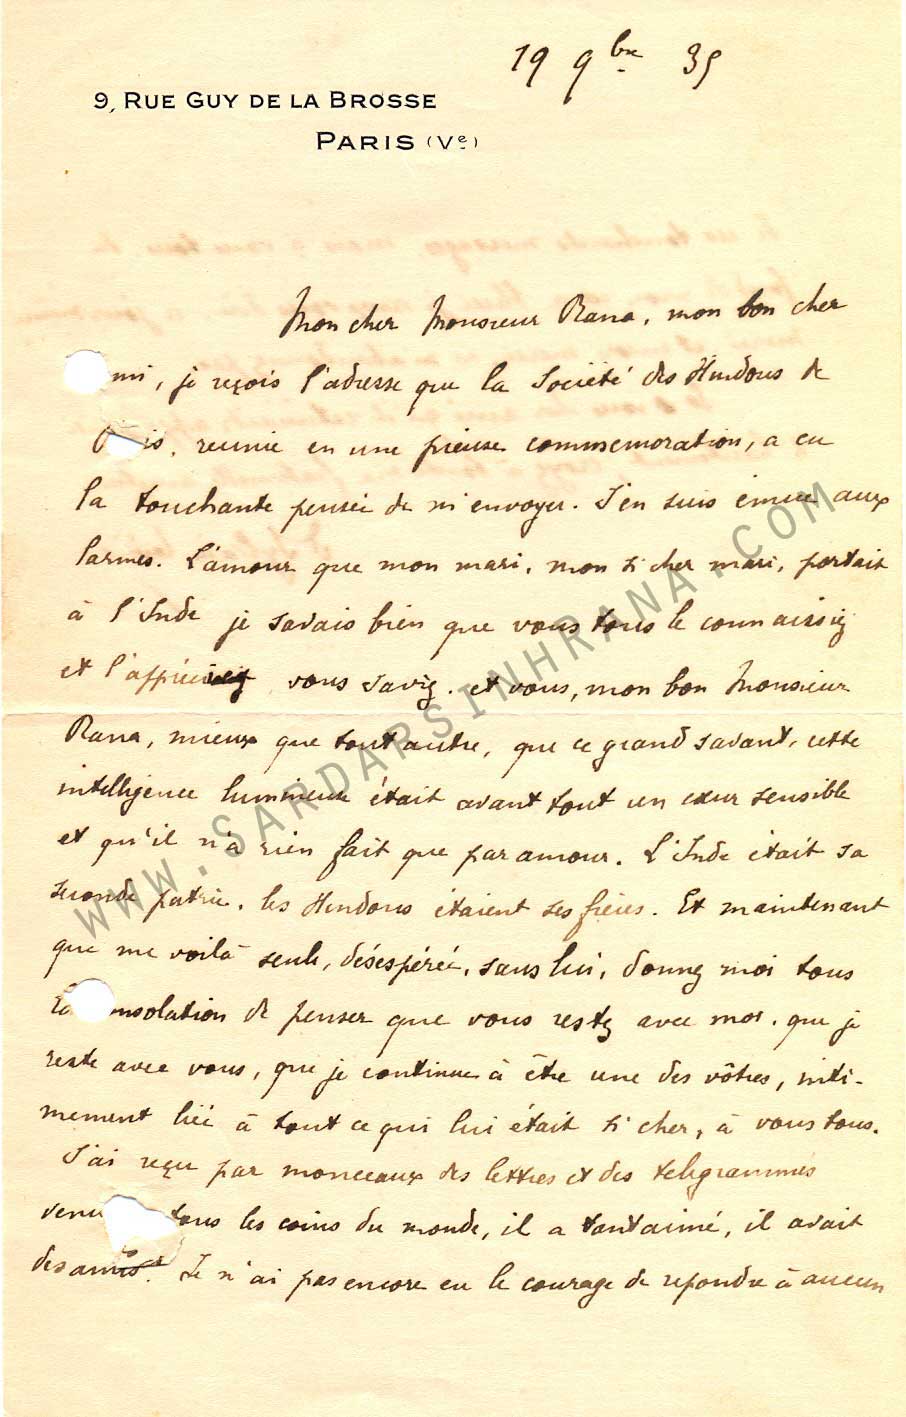 19 9bre 35
9, RUE GUY DE LA BROSSE
PARIS (Ve)
Mon cher Monsieur Rana, mon bon cher
mi, je reçois l'adresse que la Société des Hindous de
is, reunie en une pieuse commemoration, a eu
la touchante pensée de m'envoyer. J'en suis émue aux
larmes. L'amour que mon mari, mon si cher mari, portait
à l'Inde je savais bien que vous tous le connaissiez
et l'appréciiez vous saviez. et vous, mon bon Monsieur
Rana, mieux que tout autre, que ce grand savant, cette
intelligence lumineuse était avant tout un cœur sensible
et qu'il n'a rien fait que par amour. L'Inde était sa
seconde patrie, les Hindous étaient ses frères. Et maintenant
que me voilà seule, désespérée, sans lui, donnez moi tous
la onsolation de penser que vous restez avec moi. que je
reste avec vous, que je continue à être une des vôtres, inti-
mement liée à tout ce qui lui était si cher, à vous tous.
J'ai reçu par monceaux des lettres et des telegrammes
venu tous les coins du monde, il a tant aimé, il avait
des amis. Je n'ai pas encore eu le courage de repondre à aucun
WWW.SARDARSINHRANA.COM